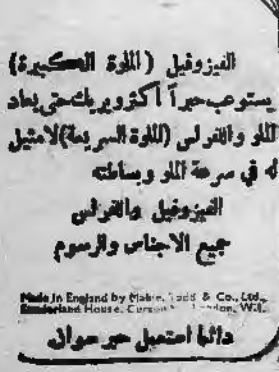 الفيزوفيل (الملوة الكبيرة)
يستوعب حبراً أكثر ويريك حتى يعاد
الملو والفرلس (الملوة السريعة) لا مثيل
له في سرعة الملو وبساطته
الفيزوفيل والفرلس
جميع الاجناس والرسوم
Made in England by Mabie, Todd & Co., Ltd.,
Sunderland House, London, W.1.
دائما استعمل حبر سوان